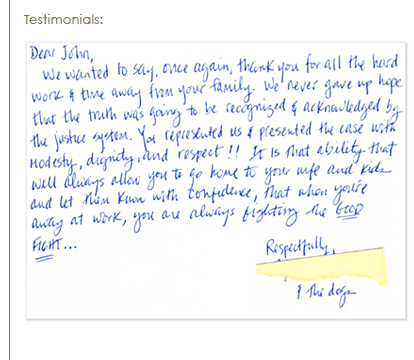 Testimonials:
Dear John,
We wanted to say, once again, thank you for all the hard
work & time away from your family. We never gave up hope
that the truth was going to be recognized & acknowledged by
the justice system. You represented us & presented the case with
modesty, dignity, and respect!! It is that ability that
will always allow you to go home to your wife and kids
and let them know with confidence, that when you're
away at work, you are always fighting the GOOD
FIGHT...
Respectfully,
& the dogs